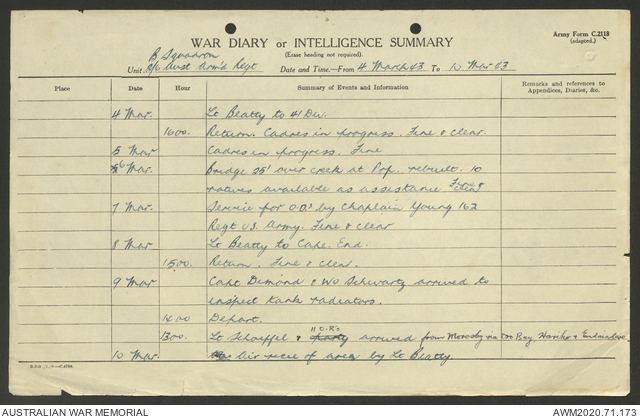 Army Form C.2118
(adapted.)
WAR DIARY or INTELLIGENCE SUMMARY
(Erase heading not required).
B Squadron
Unit 2/6 Aust Arm'd Regt Date and Time.—From 4 March 43 To 10 Mar 43
Place Date Hour Summary of Events and Information Remarks and references to Appendices, Diaries, &c.
4 Mar. Lt Beatty to 41 Div.
1600. Return. Cadres in progress. Fine & Clear.
5 Mar Cadres in progress. Fine
6 Mar. Bridge 25' over creek at Pop. rebuilt. 10
natives available as assistance Fine & Clear
7 Mar. Service for O.D's by Chaplain Young 162
Regt U.S. Army. Fine & Clear
8 Mar Lt Beatty to Cape. End.
1500. Return. Fine & Clear.
9 Mar Capt Dimond & Wo Schwartz arrived to
inspect tank radiators.
1400 Depart.
1300. Lt Schaeffel & 11 O.R's arrived from Moresby via Oro Bay, Hariko &
10 Mar. Air recce of area by Lt Beatty.
AUSTRALIAN WAR MEMORIAL AWM2020.71.173